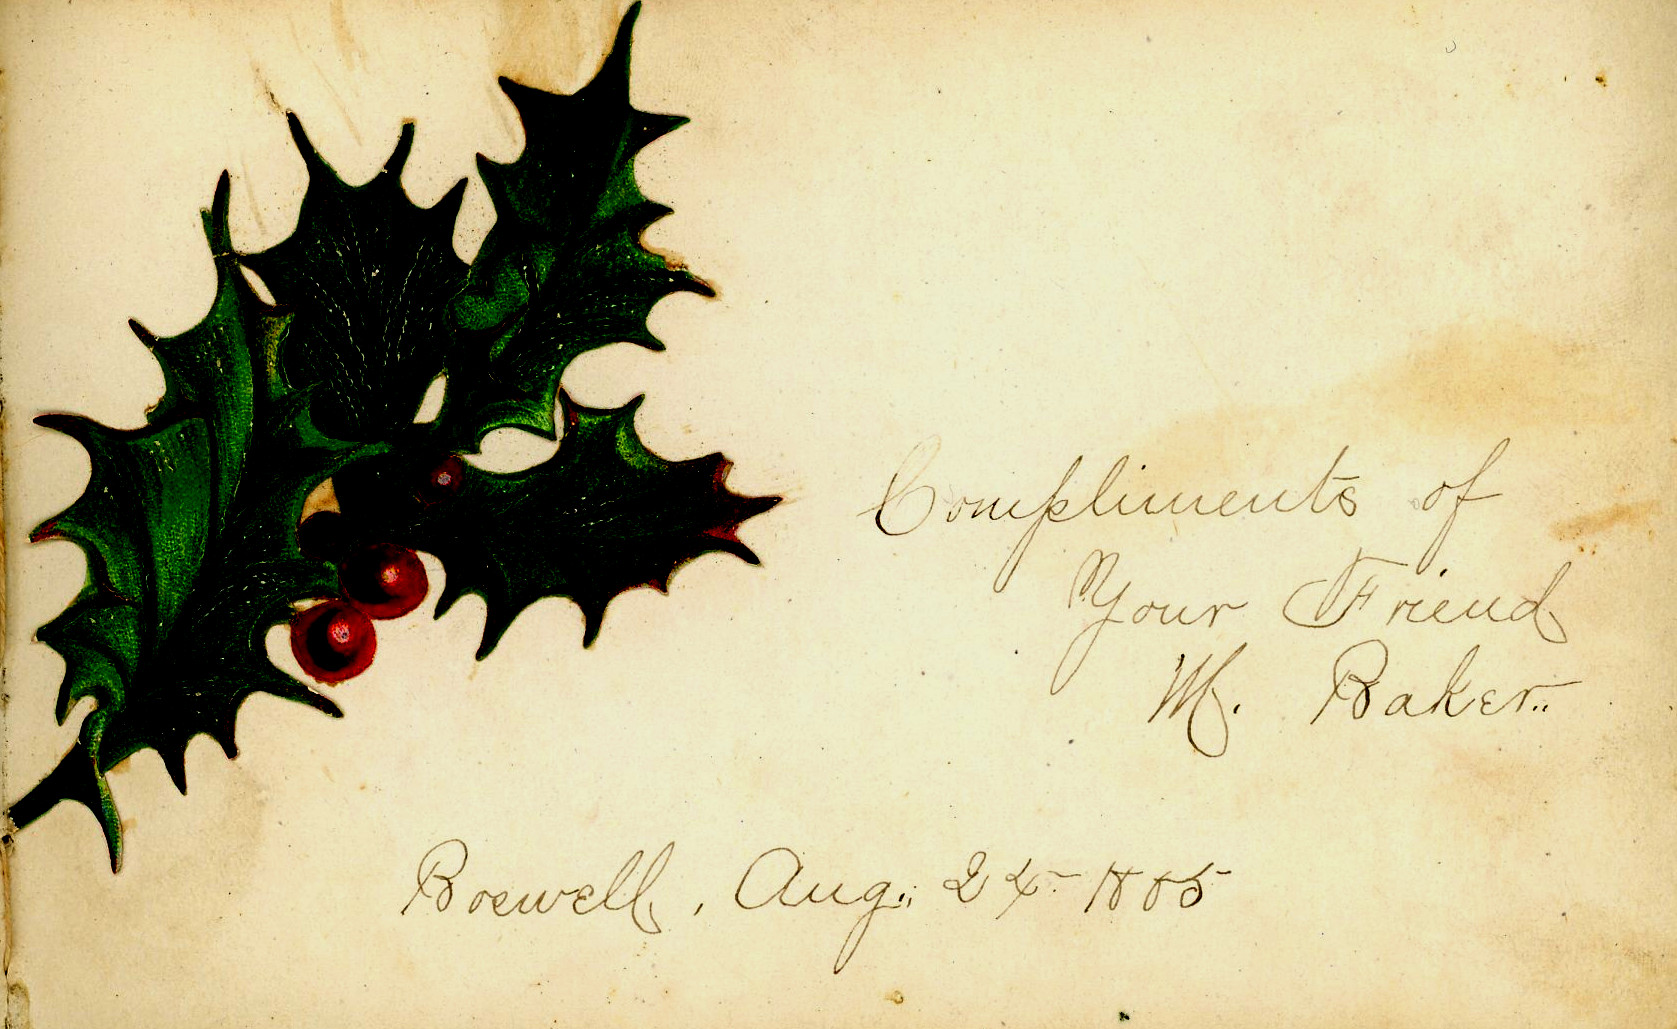 Compliments of
Your Friend
M. Baker..
Boswell, Aug.. 24- 1885